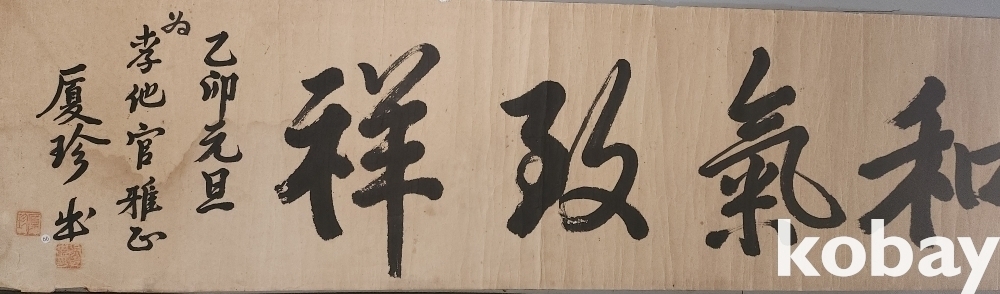 和氣致祥
乙卯元旦
为
孝他官雅正
厦珍出
kobay